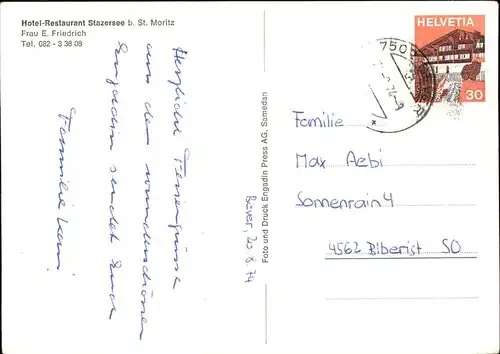 Hotel-Restaurant Stazersee b. St. Moritz
Frau E. Friedrich
Tel. 082 - 3 38 08
Herzliche Feriengrüsse
aus dem wunderschönen
Engadin sendet Euch
Familie
Bever, 20.8.74
Foto und Druck Engadin Press AG, Samedan
HELVETIA
30
750
Familie
Max Aebi
Sonnenrain 4
4562 Biberist SO